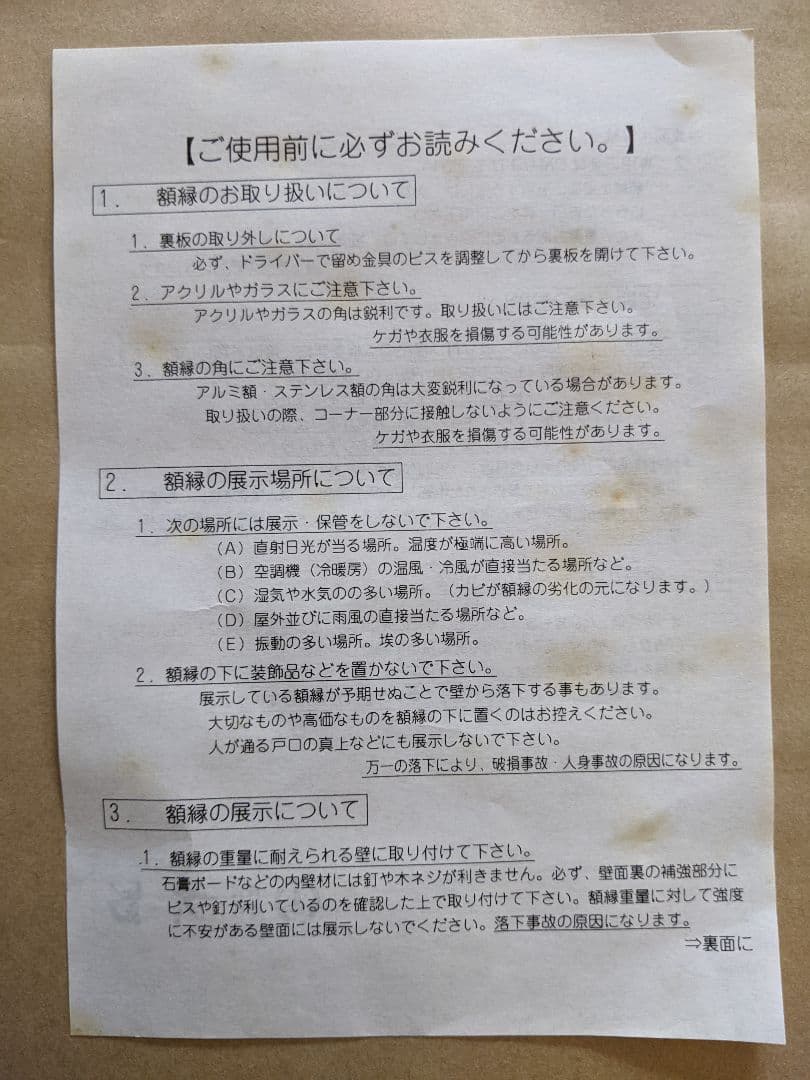 【ご使用前に必ずお読みください。】
1. 額縁のお取り扱いについて
1. 裏板の取り外しについて
必ず、ドライバーで留め金具のビスを調整してから裏板を開けて下さい。
2. アクリルやガラスにご注意下さい。
アクリルやガラスの角は鋭利です。取り扱いにはご注意下さい。
ケガや衣服を損傷する可能性があります。
3. 額縁の角にご注意下さい。
アルミ額・ステンレス額の角は大変鋭利になっている場合があります。
取り扱いの際、コーナー部分に接触しないようにご注意ください。
ケガや衣服を損傷する可能性があります。
2. 額縁の展示場所について
1. 次の場所には展示・保管をしないで下さい。
(A) 直射日光が当る場所。温度が極端に高い場所。
(B) 空調機（冷暖房）の温風・冷風が直接当たる場所など。
(C) 湿気や水気のの多い場所。（カビが額縁の劣化の元になります。）
(D) 屋外並びに雨風の直接当たる場所など。
(E) 振動の多い場所。埃の多い場所。
2. 額縁の下に装飾品などを置かないで下さい。
展示している額縁が予期せぬことで壁から落下する事もあります。
大切なものや高価なものを額縁の下に置くのはお控えください。
人が通る戸口の真上などにも展示しないで下さい。
万一の落下により、破損事故・人身事故の原因になります。
3. 額縁の展示について
1. 額縁の重量に耐えられる壁に取り付けて下さい。
石膏ボードなどの内壁材には釘や木ネジが利きません。必ず、壁面裏の補強部分に
ビスや釘が利いているのを確認した上で取り付けて下さい。額縁重量に対して強度
に不安がある壁面には展示しないでください。落下事故の原因になります。
⇒裏面に